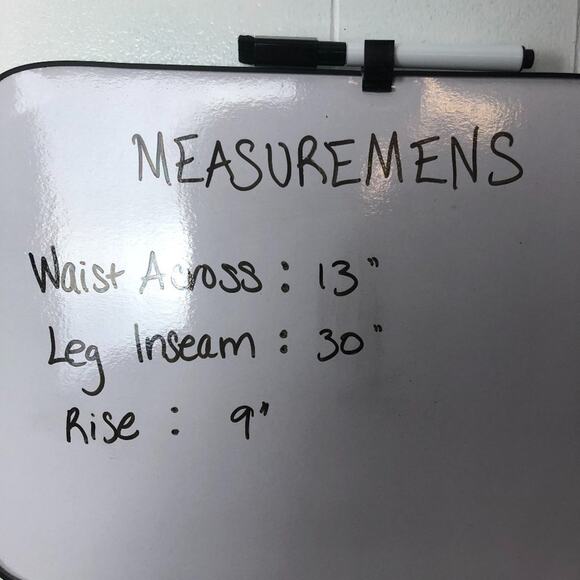 MEASUREMENS
Waist Across : 13"
Leg Inseam : 30"
Rise : 9"